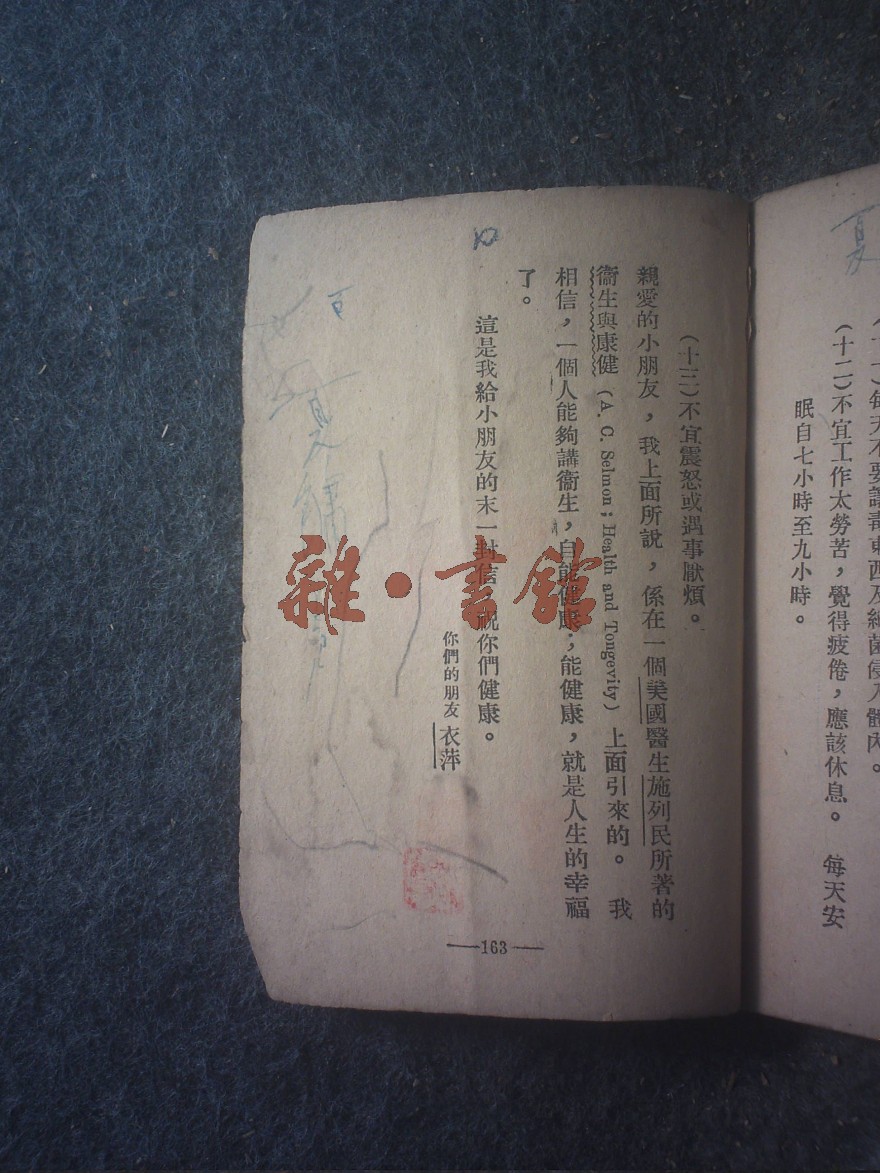 (十二)不宜工作太勞苦，覺得疲倦，應該休息。 每天安
眠自七小時至九小時。
(十三)不宜震怒或遇事厭煩。
親愛的小朋友，我上面所說，係在一個美國醫生施列民所著的
衞生與康健 (A. C. Selmon; Health and Tongevity) 上面引來的。 我
相信，一個人能夠講衞生，自能健康；能健康，就是人生的幸福
了。
這是我給小朋友的末一封信，祝你們健康。
你們的朋友 衣萍
—163—
夏
夏
雜·書舘